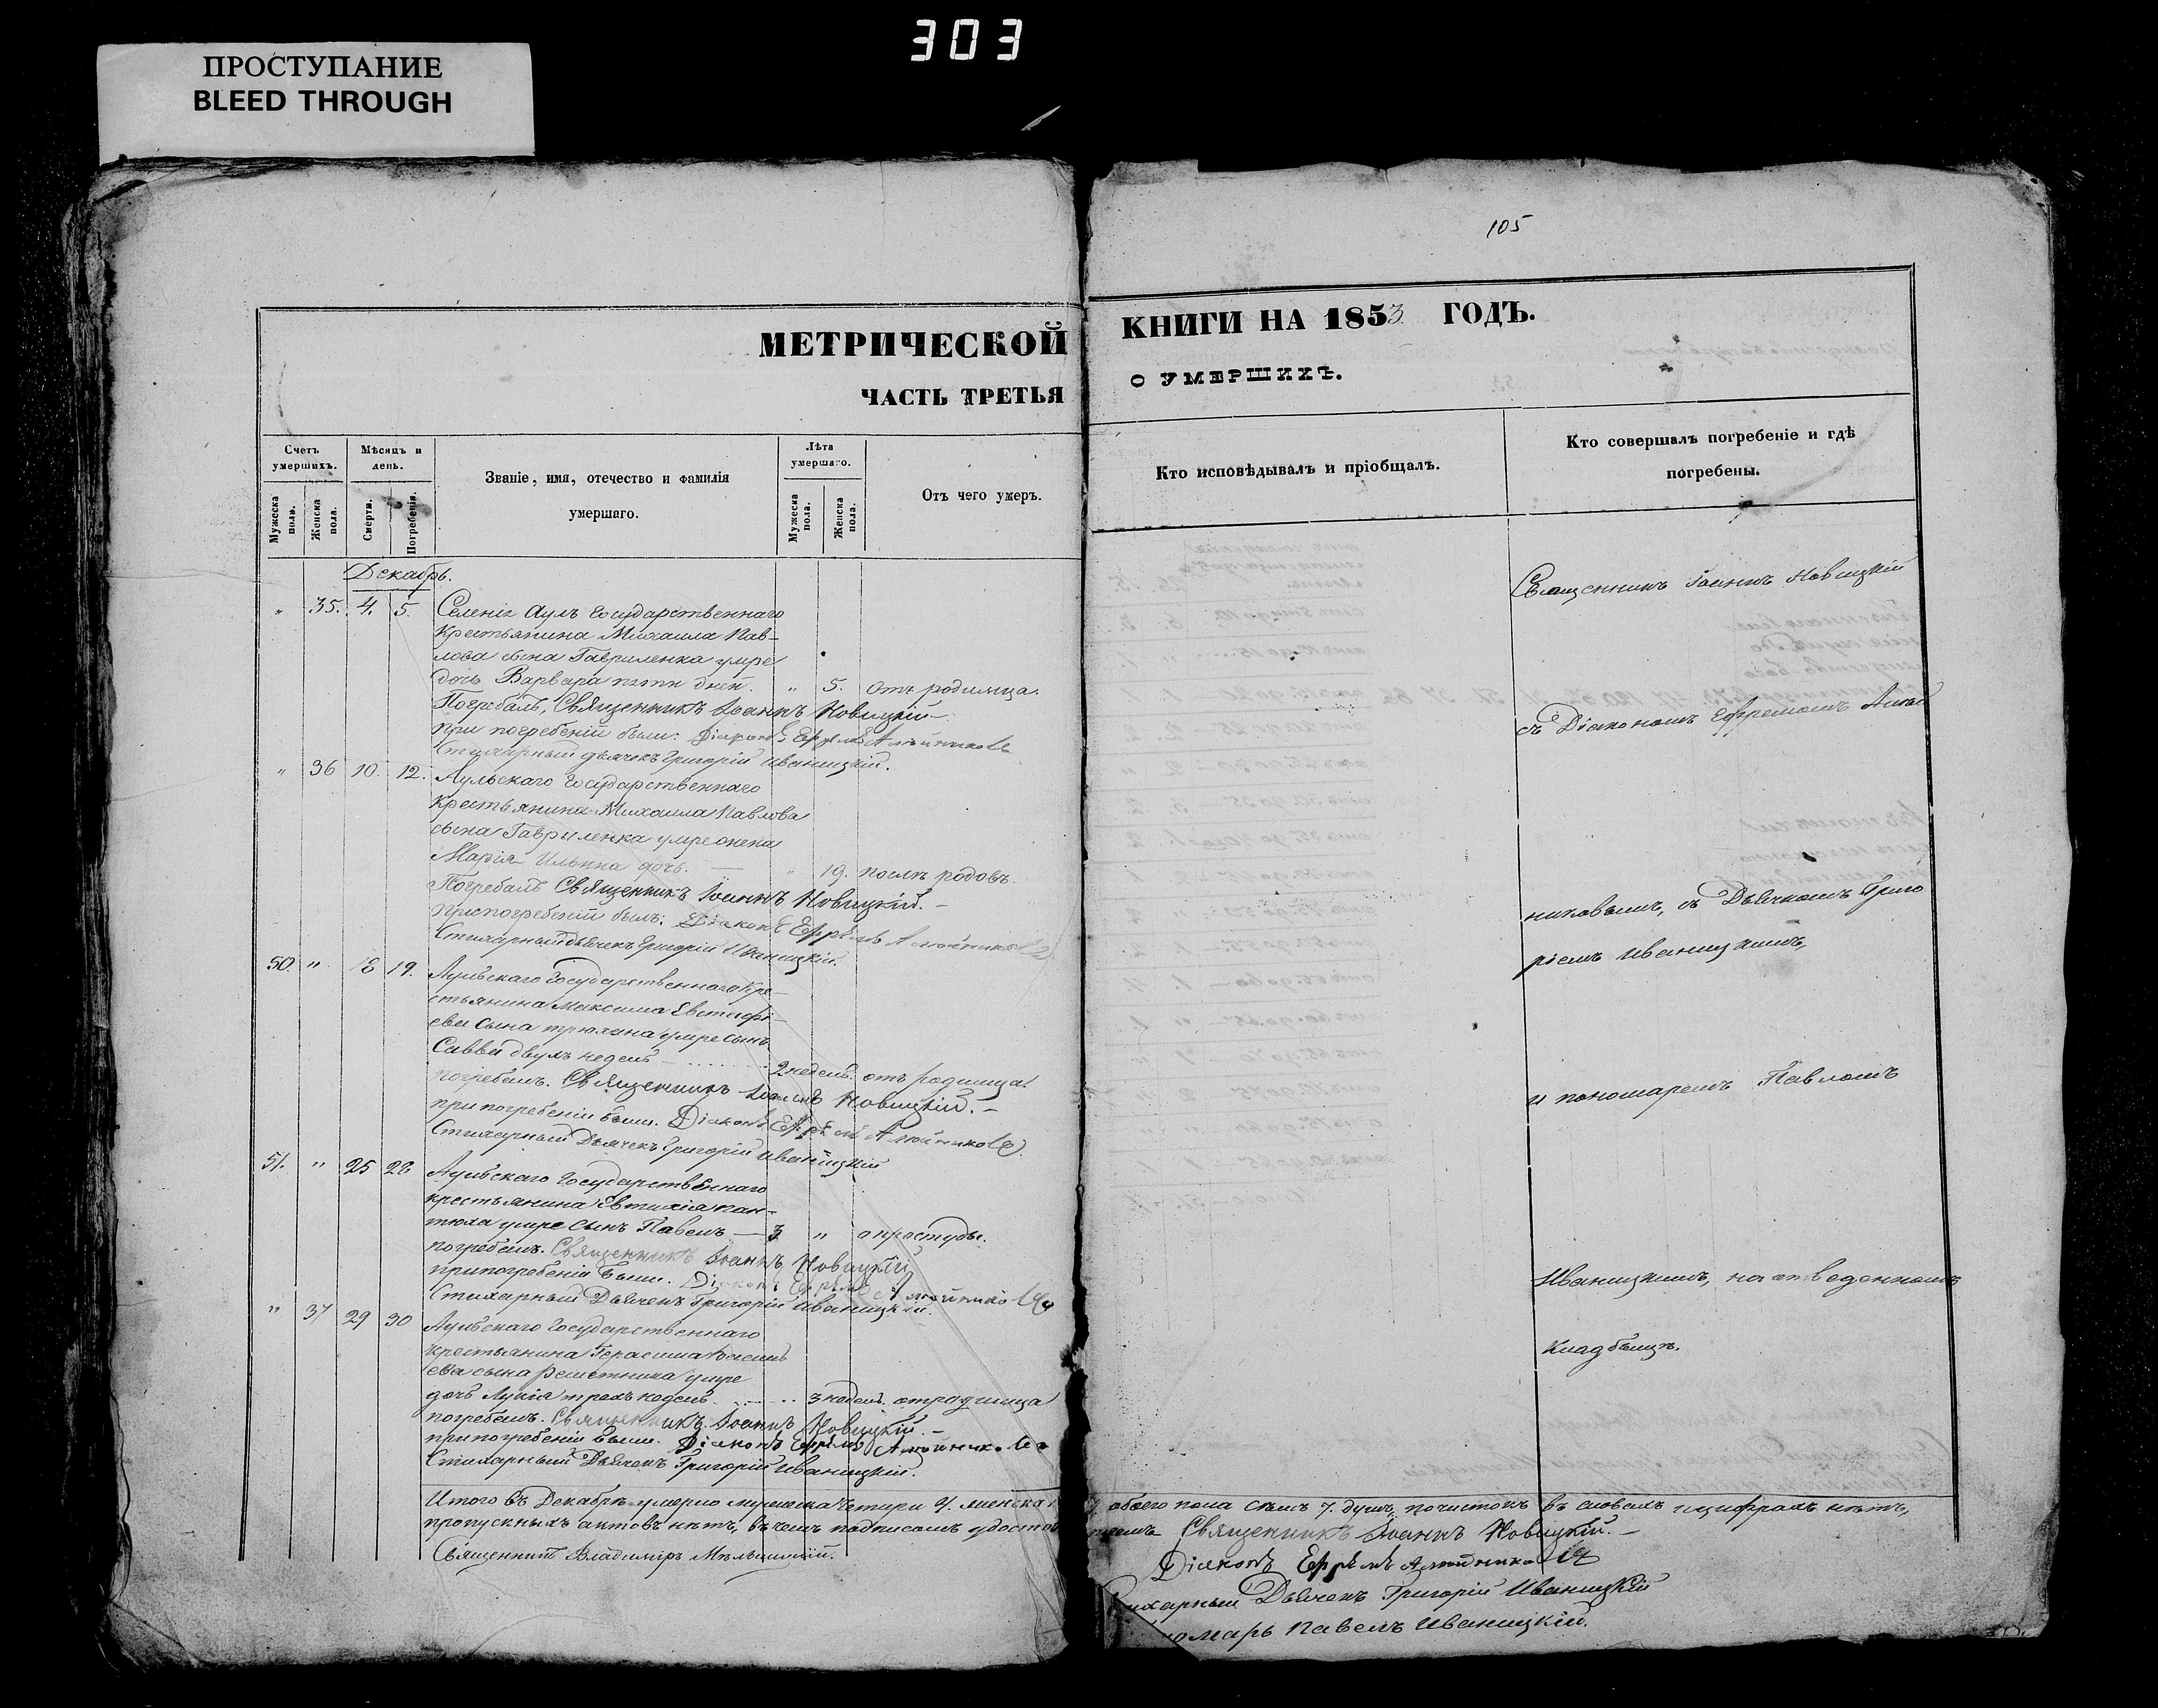 303
ПРОСТУПАНИЕ
BLEED THROUGH
105
МЕТРИЧЕСКОЙ КНИГИ НА 1853 ГОДЪ.
ЧАСТЬ ТРЕТЬЯ О УМЕРШИХЪ.
Счетъ умершихъ.
Мужеска пола.
Женска пола.
Мѣсяцъ и день.
Смерти.
Погребенія.
Званіе, имя, отечество и фамилія
умершаго.
Лѣта умершаго.
Мужеска пола.
Женска пола.
Отъ чего умеръ.
Кто исповѣдывалъ и пріобщалъ.
Кто совершалъ погребеніе и гдѣ
погребены.
Декабрь.
" 35. 4. 5. Селенія Аулъ Государственнаго
Крестьянина Михаила Пав-
лова сына Гавриленка умре
дочь Варвара пяти дней. " 5. отъ родимца.
Погребалъ, Священникъ Іоаннъ Новицкій
При погребеніи были: Діаконъ Ефремъ
Стихарный дьячекъ Григорій Иваницкій.
" 36 10. 12. Аульскаго Государственнаго
Крестьянина Михаила Павлова
сына Гавриленка умре жена
Марія Ильина дочь. " 19. послѣ родовъ.
Погребалъ Священникъ Іоаннъ Новицкій. –
При погребеніи былъ: Діаконъ Ефремъ
Стихарный дьячекъ Григорій Иваницкій.
50. " 18 19. Аульскаго Государственнаго Кре-
стьянина Максима Евстафі-
ева сына умре сынъ
Савва двухъ недель 2 недель. отъ родимца.
погребалъ. Священникъ Іоаннъ Новицкій. –
при погребеніи были. Діаконъ Ефремъ
Стихарный Дьячекъ Григорій Иваницкій
51. " 25 28 Аульскаго Государственнаго
крестьянина Евтихія Кан-
тюха умре сынъ Павелъ – 3 " о простуды.
погребалъ. Священникъ Іоаннъ Новицкій
при погребеніи были. Діаконъ Ефремъ
Стихарный Дьячекъ Григорій Иваницкій.
" 37 29 30 Аульскаго Государственнаго
крестьянина Герасима
ева сына Решетника умре
дочь трехъ недель 3 недель. отродимца
погребалъ. Священникъ Іоаннъ Новицкій. –
при погребеніи были. Діаконъ Ефремъ
Стихарный Дьячекъ Григорій Иваницкій.
Священникъ Іоаннъ Новицкій
съ Діакономъ Ефремомъ
никовымъ, съ Дьячкомъ Григо
ріемъ Иваницкимъ,
и пономаремъ Павломъ
Иваницкимъ, на отведенномъ
кладбищѣ.
Итого въ Декабрѣ умерло мужеска четыри 4. женска обоего пола семъ 7. душъ, почистокъ въ словахъ и цифрахъ нѣтъ,
пропускныхъ актовъ нѣтъ, въ чемъ подписомъ Священникъ Іоаннъ Новицкій. –
Священникъ Владиміръ
Діаконъ Ефремъ
Дьячекъ Григорій Иваницкій
Павелъ Иваницкій.